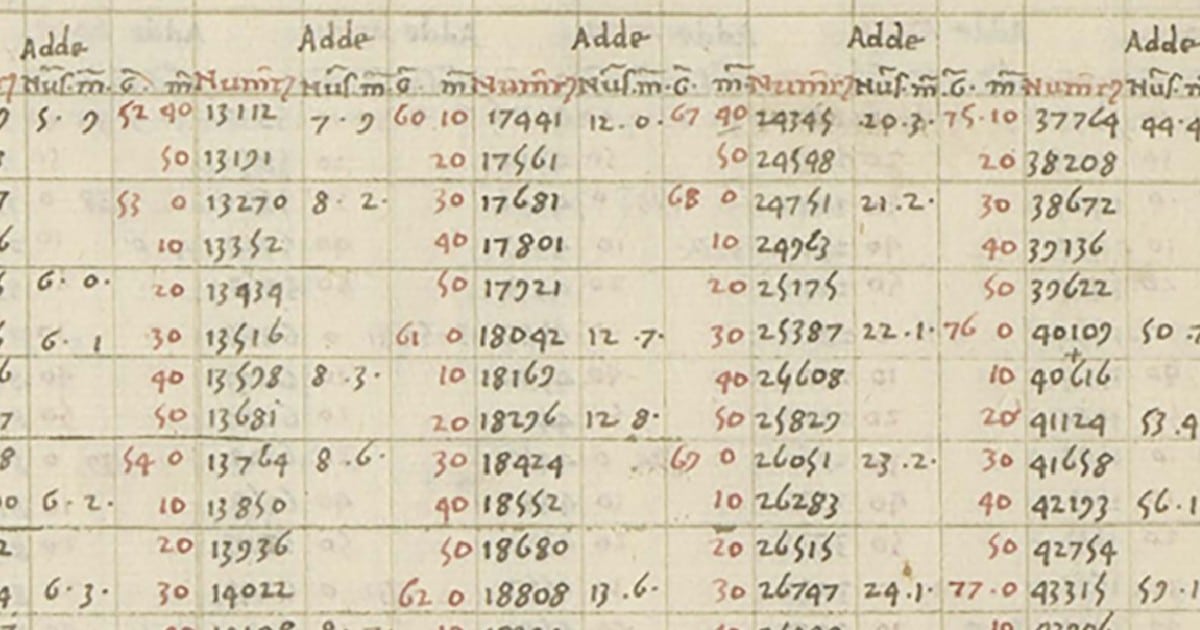 Adde Adde Adde Adde Adde
Nũs. m̃. G̃. m̃ Num̃r Nũs. m̃ G̃ m̃ Num̃r Nũs. m̃. G̃. m̃ Num̃r Nũs. m̃ G̃. m̃ Num̃r Nũs. m̃
5. 9 52 40 13112 7. 9 60 10 17441 12. 0. 67 40 24345 20.3. 75.10 37764 44.4
50 13191 20 17561 50 24548 20 38208
53 0 13270 8 2. 30 17681 68 0 24751 21.2. 30 38672
10 13352 40 17801 10 24963 40 39136
6. 0. 20 13434 50 17921 20 25175 50 39622
6. 1 30 13516 61 0 18042 12 .7. 30 25387 22.1. 76 0 40109 50
40 13598 8.3. 10 18169 40 25608 10 40616
50 13681 20 18296 12 8. 50 25829 20 41124 53.4
54 0 13764 8.6. 30 18424 69 0 26051 23.2. 30 41658
6.2. 10 13850 40 18552 10 26283 40 42193 56.1
20 13936 50 18680 20 26515 50 42754
6.3. 30 14022 62 0 18808 13.6. 30 26747 24.1. 77.0 43315 59.